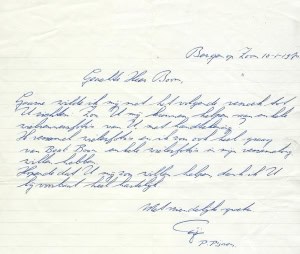 Bergen op Zoom 10-5-19
Geachte Heer Boon
Gaarne wilde ik mij met het volgende verzoek tot
U richten Zou U mij kunnen helpen aan enkele
van U, met handtekening
Ik verzamel en ik zou ook heel graag
van Bert Boon enkele in mijn verzameling
willen hebben
Hopende dat U mij zou willen helpen dank ik U
bij voorbaat heel hartelijk
Met vriendelijke groeten
P. Boon